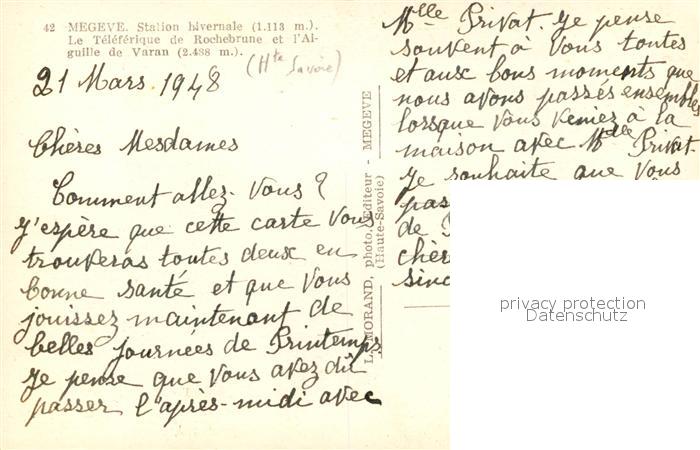 42 MEGEVE. Station hivernale (1.113 m.).
Le Téléférique de Rochebrune et l'Ai-
guille de Varan (2.488 m.).
(Hte Savoie)
21 Mars 1948
Chères Mesdames
Comment allez-vous ?
J'espère que cette carte vous
trouveras toutes deux en
bonne santé et que vous
jouissez maintenant de
belles journées de Printemps
Je pense que vous avez dû
passer l'après-midi avec
L. MORAND, photo. éditeur - MEGEVE
(Haute-Savoie)
Mlle Privat. Je pense
souvent à vous toutes
et aux bons moments que
nous avons passés ensembles
lorsque vous veniez à la
maison avec Mlle Privat.
Je souhaite que vous
pas
de P
chèr
sinc
privacy protection
Datenschutz